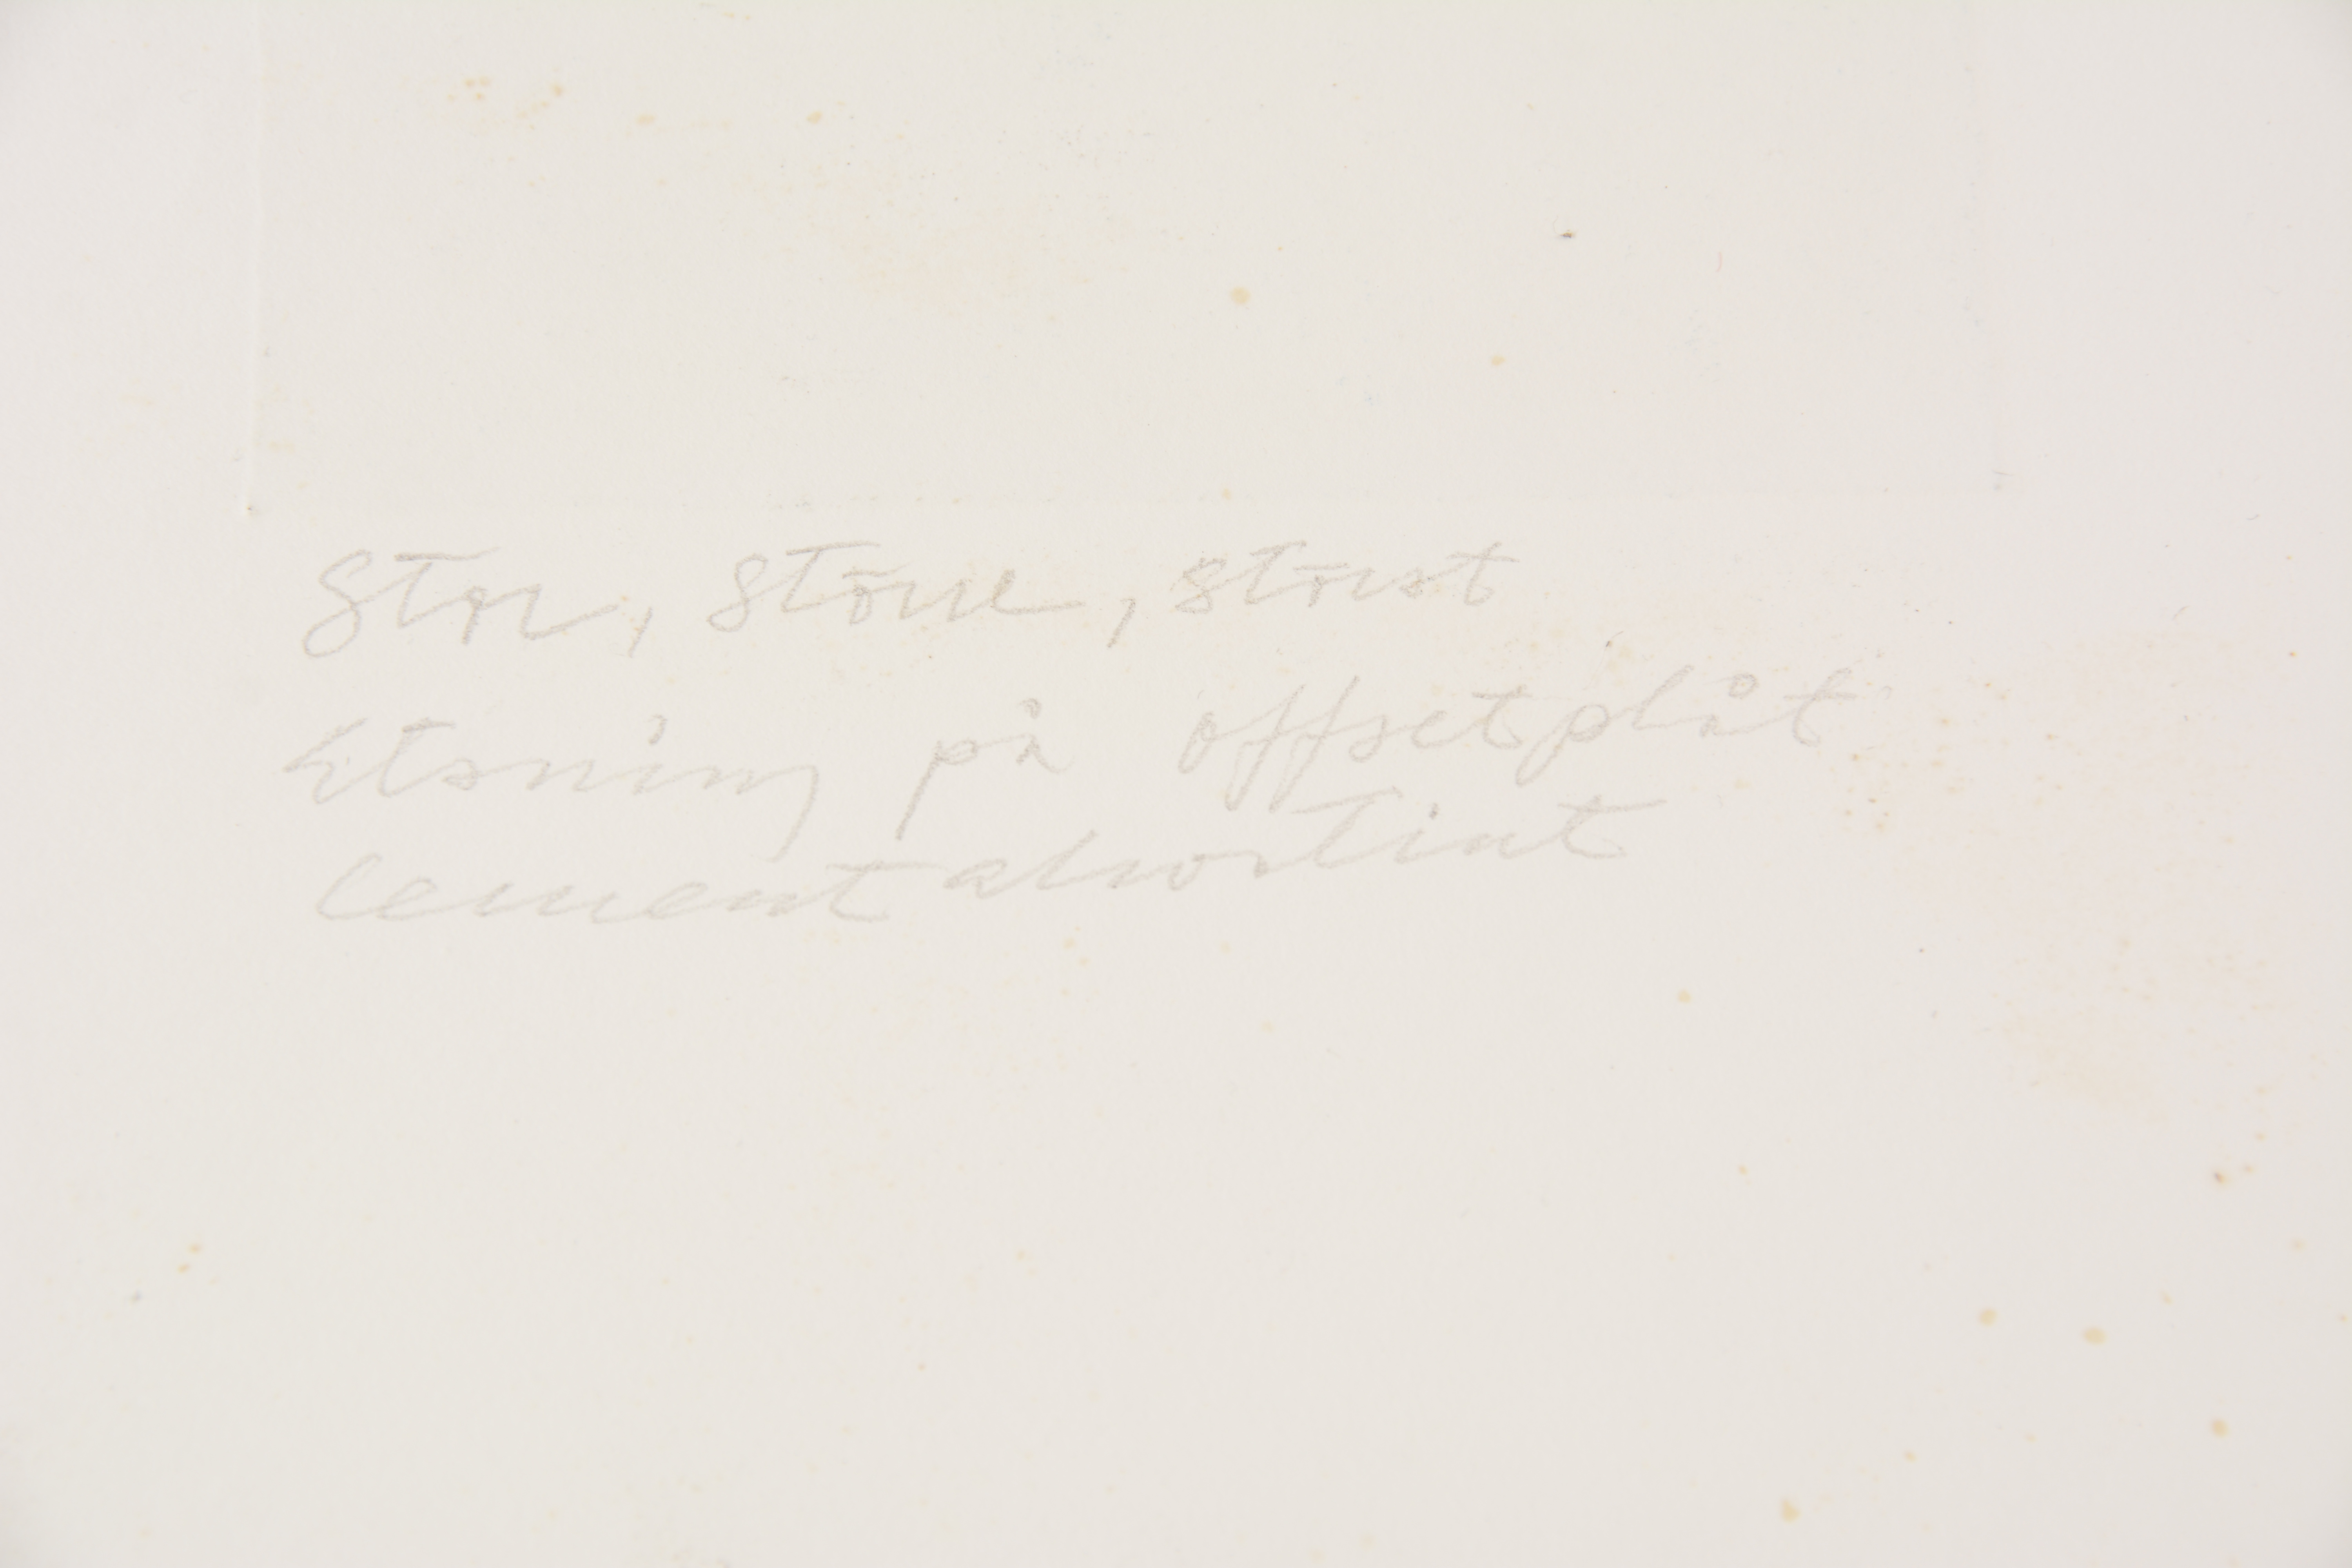 Stor, Större, störst
Etsning på offsetplåt
cement